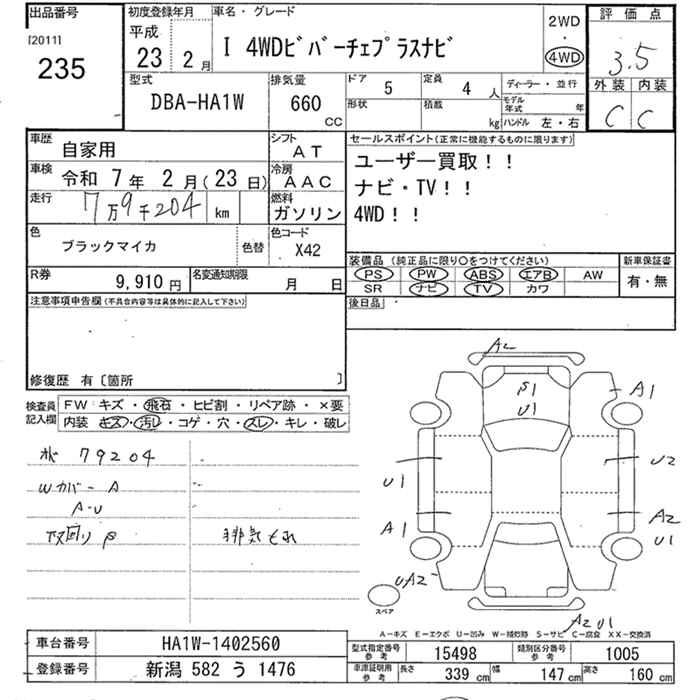 出品番号
[2011]
235
初度登録年月
平成
23 2月
車名・グレード
I 4WDビバーチェプラスナビ
2WD
・
4WD
評価点
3.5
外装 内装
C C
型式
DBA-HA1W
排気量
660
CC
ドア
5
定員
4 人
形状
積載
kg
ディーラー・並行
モデル年式 年
ハンドル 左・右
車歴
自家用
シフト
AT
車検
令和 7年 2月(23日)
冷房
AAC
走行
7万9千204 km
燃料
ガソリン
色
ブラックマイカ
色替
色コード
X42
R券
9,910 円
名変通知期限
月 日
セールスポイント(正常に機能するものに限ります)
ユーザー買取!!
ナビ・TV!!
4WD!!
装備品 (純正品に限り○をつけてください)
PS PW ABS エアB AW
SR ナビ TV カワ
新車保証書
有・無
後日品
注意事項申告欄(不具合内容等は具体的に記入して下さい)
修復歴 有〔箇所 〕
検査員
記入欄
FW キズ・飛石・ヒビ割・リペア跡・×要
内装 キズ・汚レ・コゲ・穴・スレ・キレ・破レ
79204
Wカバー A
A-U
下回り P
排気もれ
A2
P1
U1
A1
U1
U2
A1
A2
U1
UA2
A2 U1
スペア
A-キズ E-エクボ U-凹み W-補修跡 S-サビ C-腐食 XX-交換済
車台番号
HA1W-1402560
登録番号
新潟 582 う 1476
型式指定番号
参考
15498
類別区分番号
参考
1005
車庫証明用
参考
長さ 339 cm 幅 147 cm 高さ 160 cm